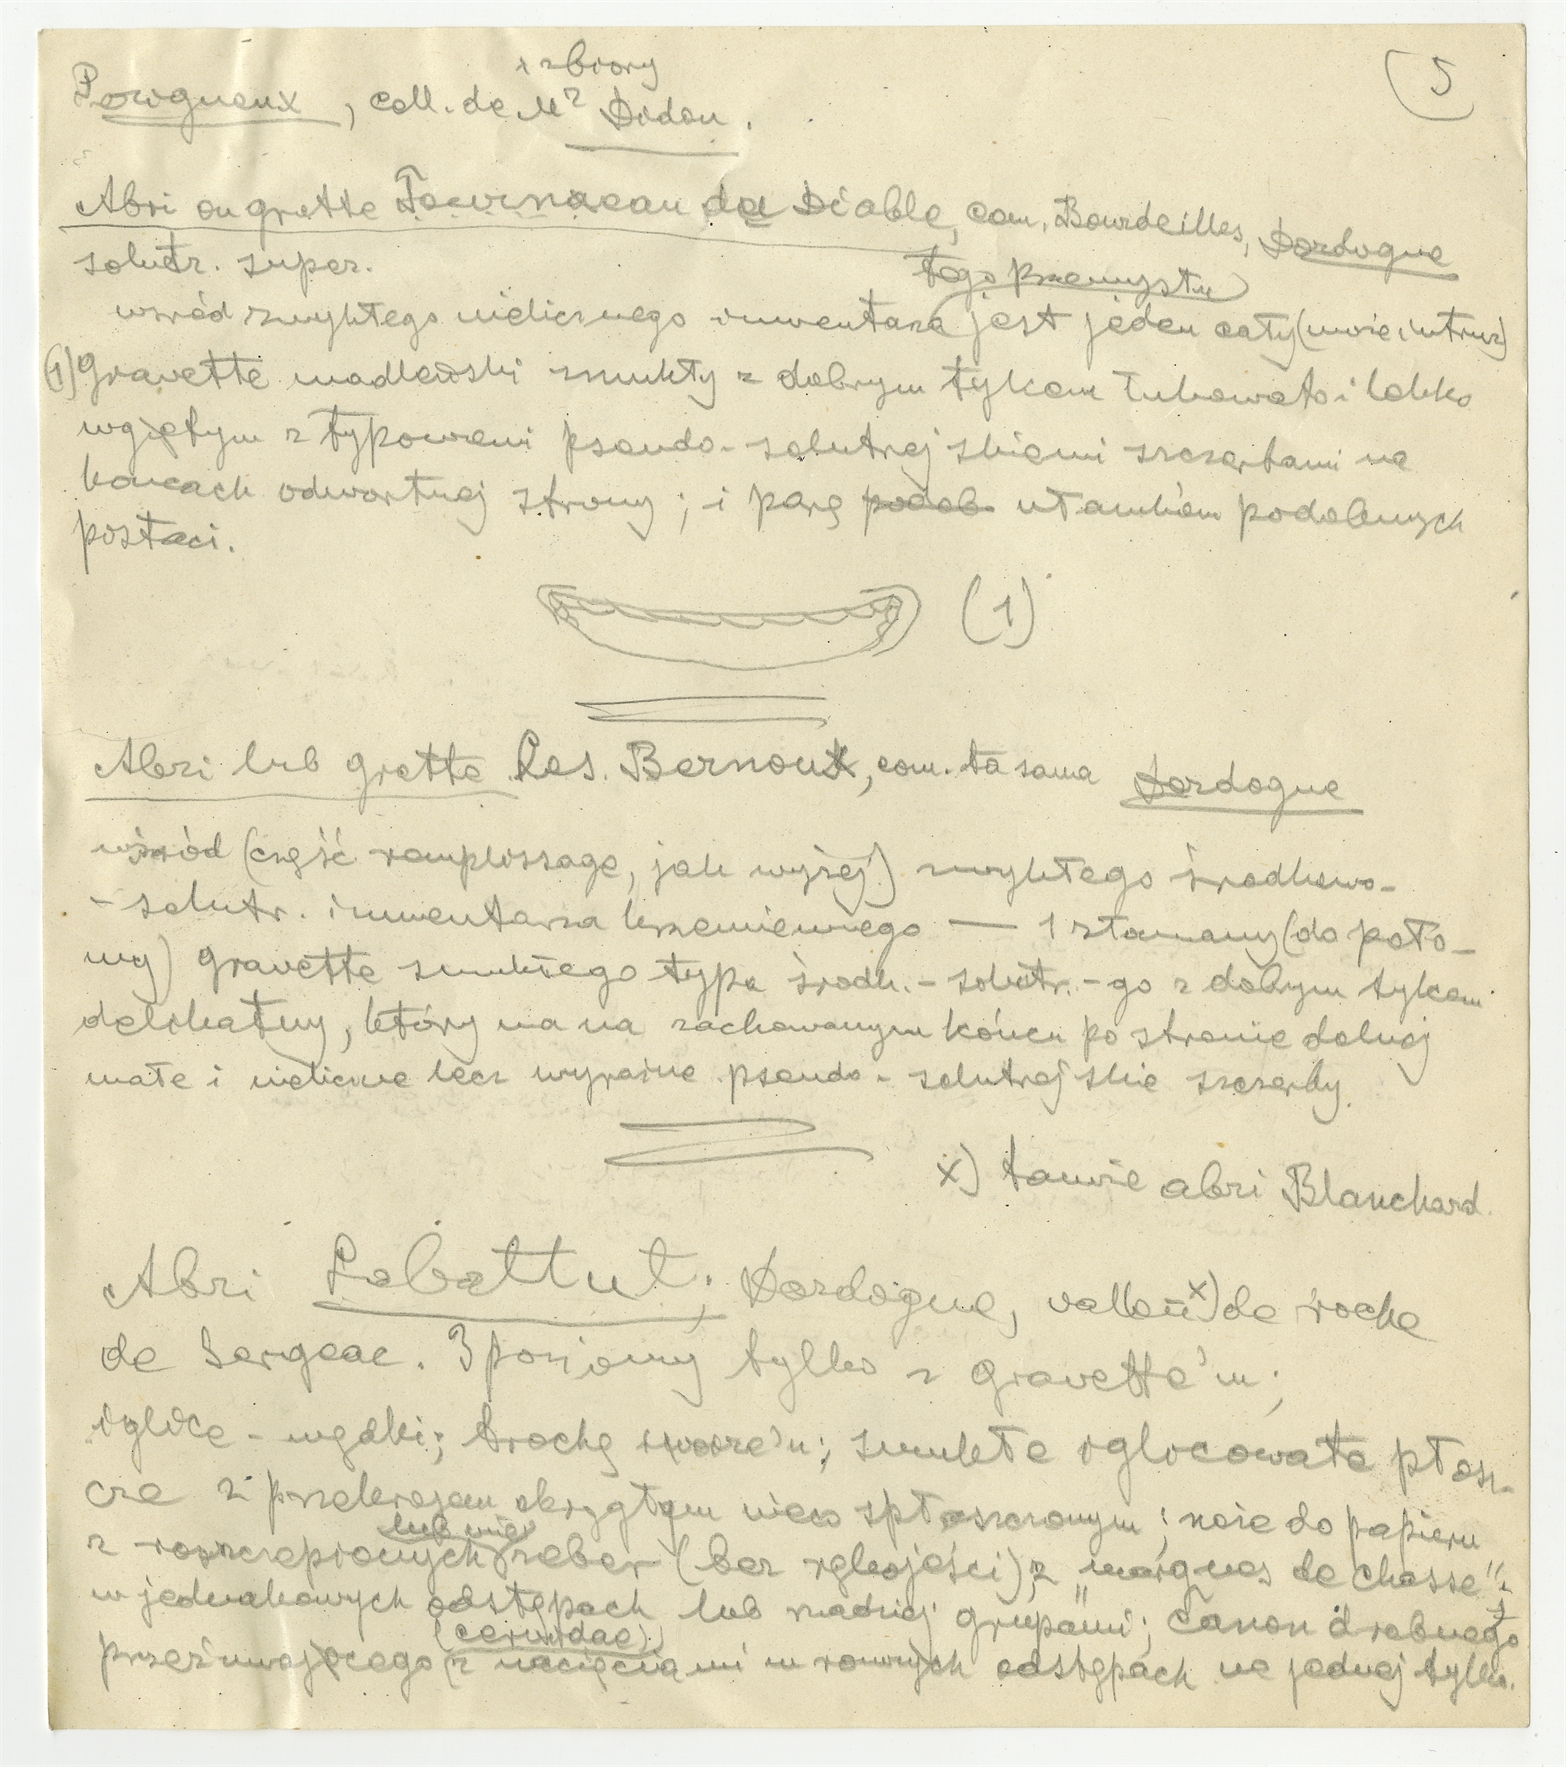 (5
x zbiory
Perigueux, coll. de Mr Didon.
Abri ou grotte Fourneau du Diable, com. Bourdeilles, Dordogne
solutr. super.
tego przemysłu
wśród zwykłego nielicznego inwentarza jest jeden cały (może intruz)
(1) gravette smukły z dobrym tylcem łukowato i lekko
wgiętym z typowemi pseudo-solutrejskiemi szczerbami na
końcach odwrotnej strony; i parę podob. ułamków podobnych
postaci.
(1)
Abri lub grotte Les. Bernoux, com. ta sama Dordogne
wśród (część remplissage, jak wyżej) zwykłego środkowo-
-solutr. inwentarza krzemiennego — 1 złamany (do poło-
wy) gravette smukłego typu środk.-solutr.-go z dobrym tylcem
delikatny, który ma na zachowanym końcu po stronie dolnej
małe i nieliczne lecz wyraźne pseudo-solutrejskie szczerby.
x) tamże abri Blanchard.
Abri Labattut; Dordogne, vallon x) de roche
de Sergeac. 3 poziomy tylko z gravette'm;
iglice - wędki; trochę ivoire'u; smukłe iglicowate płosz-
cze z przekrojem okrągłym nieco spłaszczonym; noże do papieru
lub nie
z rozszczepionych żeber (bez rękojeści), z "marques de chasse"
w jednakowych odstępach lub rzadziej grupami; canon drobnego
(cervidae)
przeżuwającego z nacięciami w równych odstępach na jednej tylko.